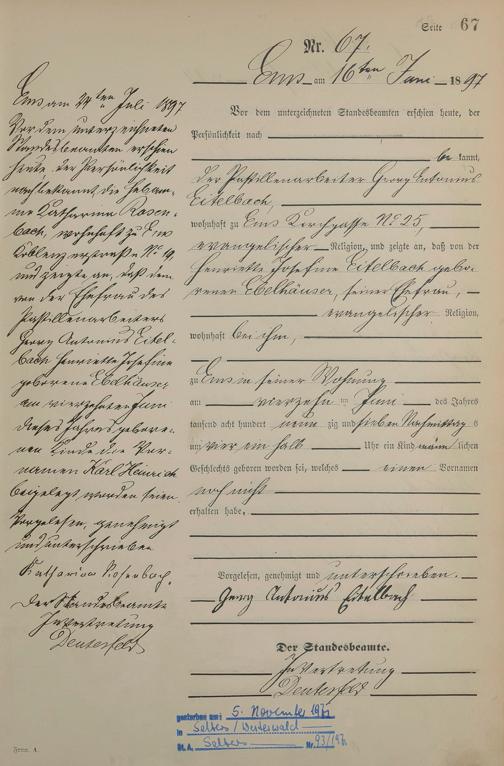 Seite 67
Nr. 67.
Ems am 16ten Juni 1897
Vor dem unterzeichneten Standesbeamten erschien heute, der
Persönlichkeit nach
be kannt,
der Pastillenarbeiter Georg Antonius
Eitelbach,
wohnhaft zu Ems Kirchgasse No 25,
evangelischer Religion, und zeigte an, daß von der
Henriette Josefine Eitelbach gebo-
renen Ebelhäuser, seiner Ehefrau,
evangelischer Religion,
wohnhaft bei ihm,
zu Ems in seiner Wohnung
am vierzehn ten Juni des Jahres
tausend acht hundert neun zig und sieben Nachmittag s
um vier ein halb Uhr ein Kind männ lichen
Geschlechts geboren worden sei, welches einen Vornamen
noch nicht
erhalten habe.
Vorgelesen, genehmigt und unterschrieben.
Georg Antonius Eitelbach
Der Standesbeamte.
In Vertretung
Ems am 24ten Juli 1897
Vor dem unterzeichneten
Standesbeamten erschien
heute, der Persönlichkeit
nach bekannt, die Hebam-
me Katharina Rosen-
bach, wohnhaft zu Ems
Koblenzerstraße No 19,
und zeigte an, daß dem
von der Ehefrau des
Pastillenarbeiters
Georg Antonius Eitel-
bach Henriette Josefine
geborene Ebelhäuser
am vierzehnten Juni
dieses Jahres gebore-
nen Kinde die Vor-
namen Karl Heinrich
beigelegt worden seien
Vorgelesen, genehmigt
und unterschrieben
Katharina Rosenbach.
Der Standesbeamte
In Vertretung
gestorben am: 5. November
in Selters/Westerwald
St. A. Selters Nr. 93/197
Form. A.